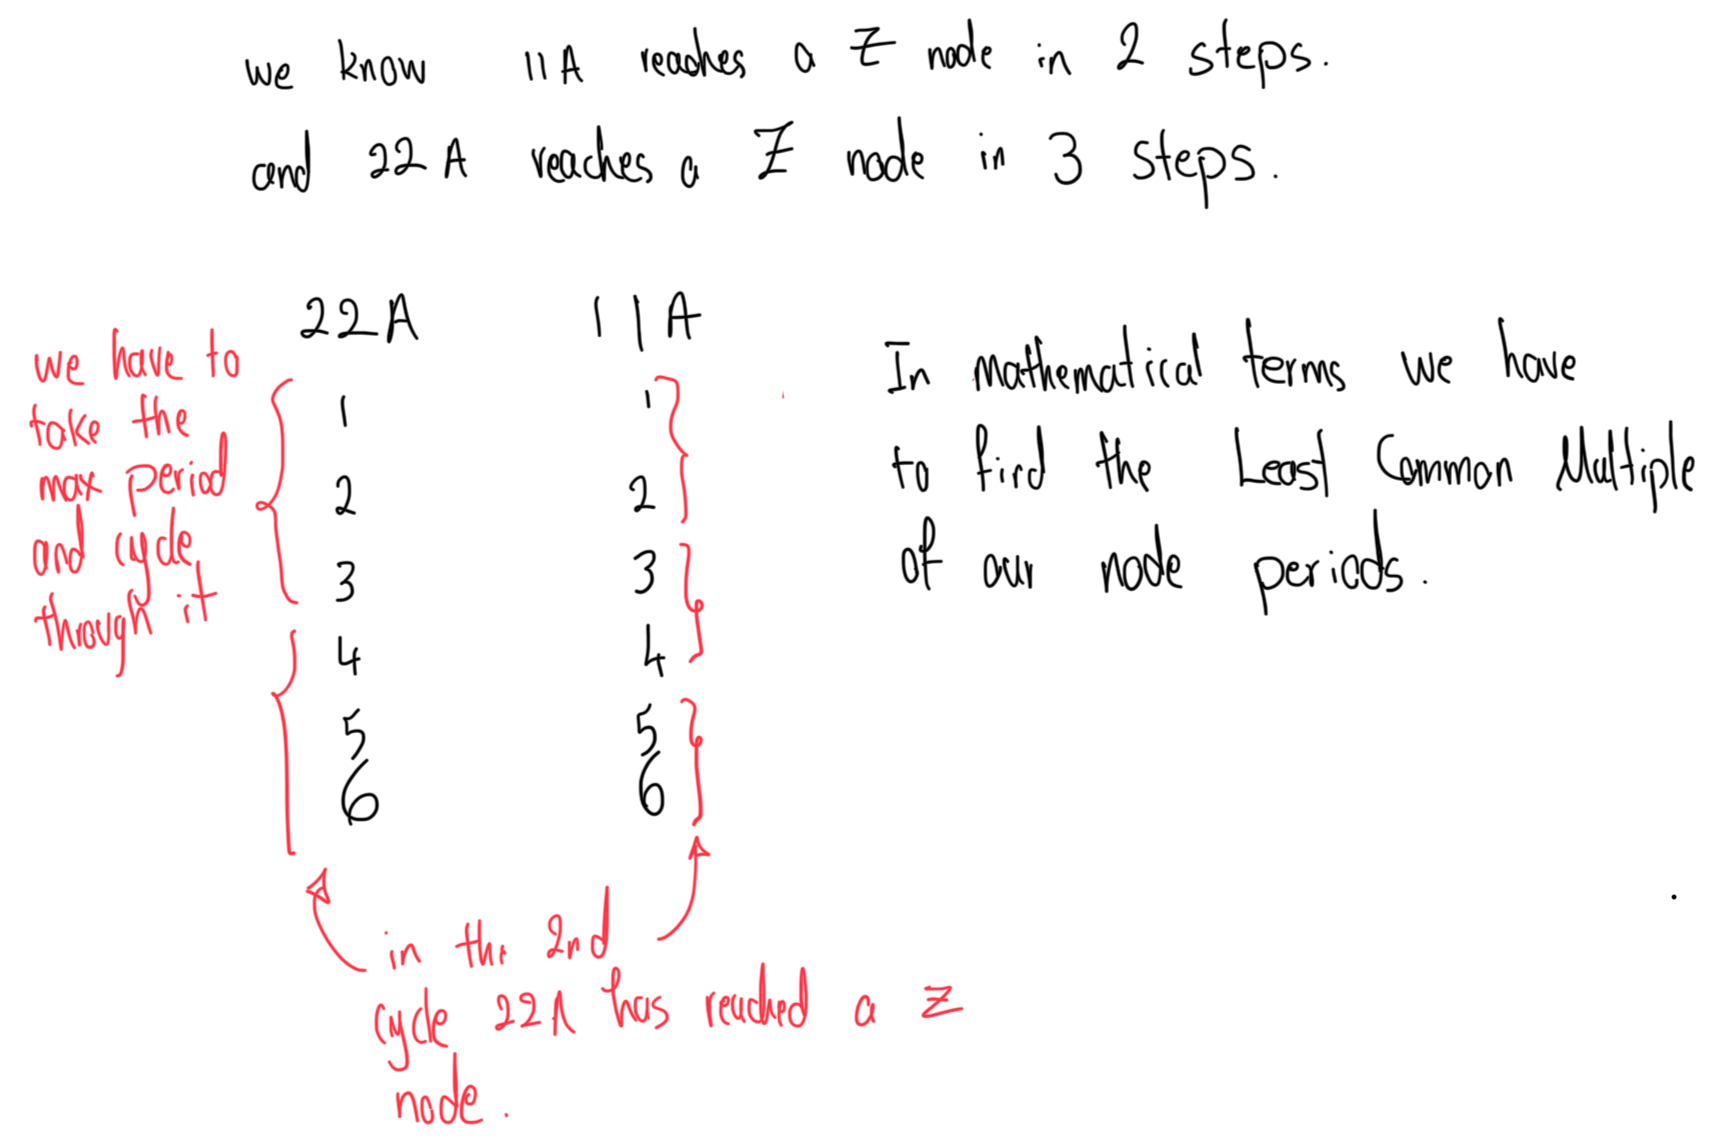 we know 11A reaches a Z node in 2 steps.
and 22A reaches a Z node in 3 steps.
22A 11A
we have to
take the
max period
and cycle
through it
1 1
2 2
3 3
4 4
5 5
6 6
in the 2nd
cycle 22A has reached a Z
node.
In mathematical terms we have
to find the Least Common Multiple
of our node periods.